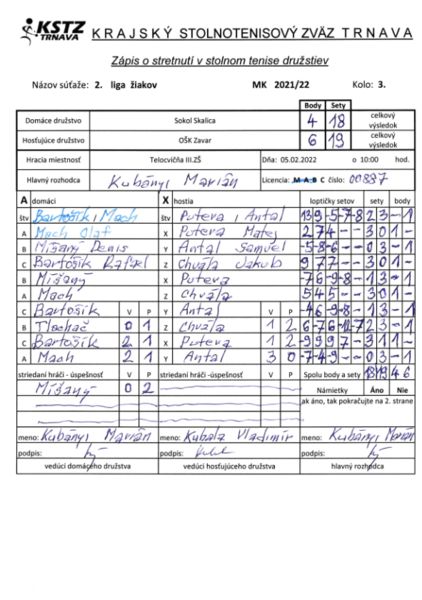 KSTZ TRNAVA
KRAJSKÝ STOLNOTENISOVÝ ZVÄZ TRNAVA
Zápis o stretnutí v stolnom tenise družstiev
Názov súťaže: 2. liga žiakov MK 2021/22 Kolo: 3.
Body Sety
Domáce družstvo Sokol Skalica 4 18 celkový výsledok
Hosťujúce družstvo OŠK Zavar 6 19 celkový výsledok
Hracia miestnosť Telocvičňa III.ZŠ Dňa: 05.02.2022 o 10:00 hod.
Hlavný rozhodca Kubányi Marián Licencia: M A B C číslo: 00887
A domáci X hostia loptičky setov sety body
štv Bartošík, Mach štv Puteva, Antal
A Mach Olaf X Puteva Matej 2 7 4 - - 3 0 1 -
B Míšaný Denis Y Antal Samuel -5 -8 -6 - - 0 3 - 1
C Bartošík Rafael Z Chvála Jakub 9 7 7 - - 3 0 1 -
B Míšaný X Puteva -7 6 -9 -8 - 1 3 - 1
A Mach Z Chvála 5 4 5 - - 3 0 1 -
C Bartošík V P Y Antal V P -4 6 -9 -8 - 1 3 - 1
B Tlocháč 0 1 Z Chvála 1 2 2 3 - 1
C Bartošík 2 1 X Puteva 1 2 3 1 1 -
A Mach 2 1 Y Antal 3 0 -7 -4 -9 - - 0 3 - 1
striedaní hráči - úspešnosť V P striedaní hráči - úspešnosť V P Spolu body a sety 18 19 4 6
Míšaný 0 2 Námietky Áno Nie
ak áno, tak pokračujte na 2. strane
meno: Kubányi Marián meno: Kubala Vladimír meno: Kubányi Marián
podpis: podpis: podpis:
vedúci domáceho družstva vedúci hosťujúceho družstva hlavný rozhodca